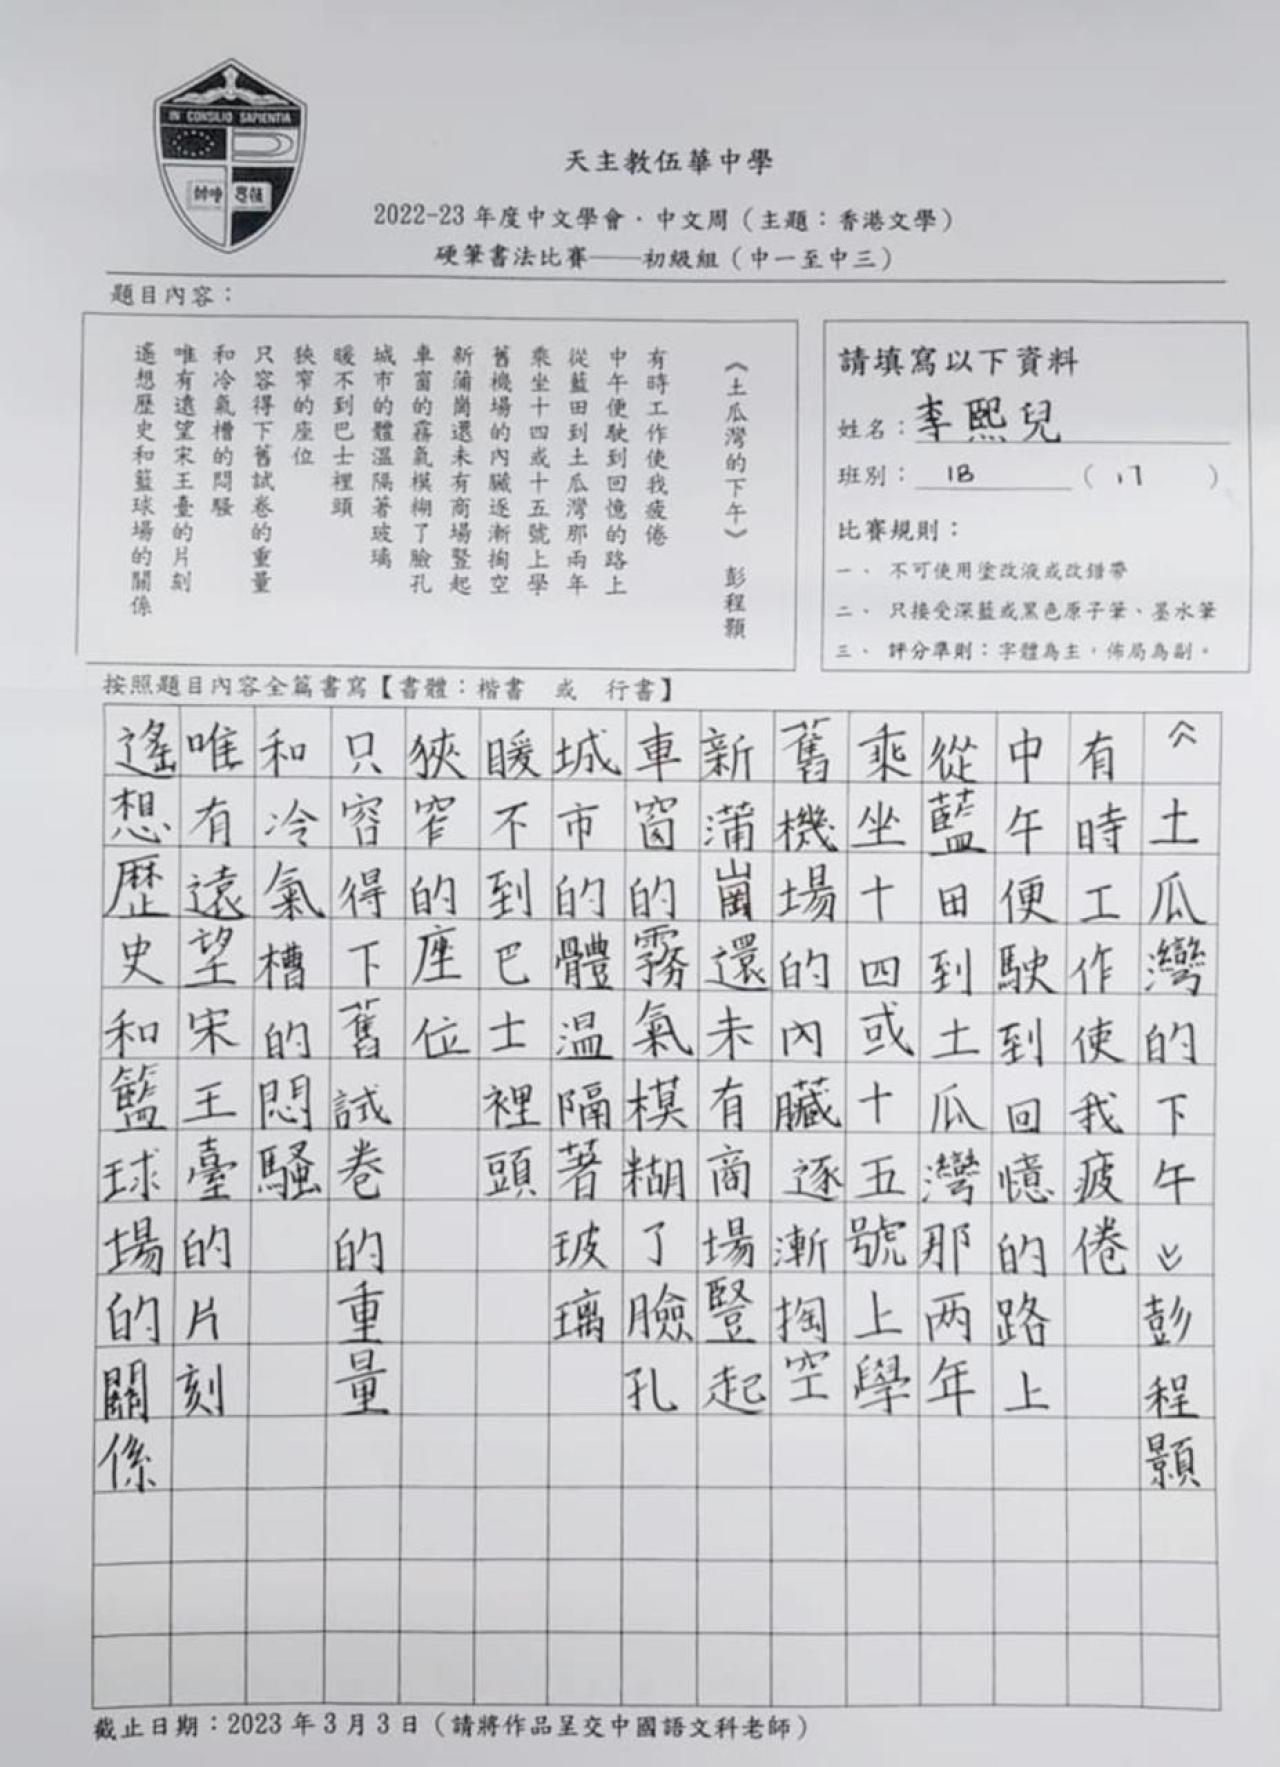 IN CONSILIO SAPIENTIA
天主教伍華中學
2022-23 年度中文學會·中文周（主題：香港文學）
硬筆書法比賽——初級組（中一至中三）
題目內容：
《土瓜灣的下午》 彭程顥
有時工作使我疲倦
中午便駛到回憶的路上
從藍田到土瓜灣那兩年
乘坐十四或十五號上學
舊機場的內臟逐漸掏空
新蒲崗還未有商場豎起
車窗的霧氣模糊了臉孔
城市的體溫隔著玻璃
暖不到巴士裡頭
狹窄的座位
只容得下舊試卷的重量
和冷氣槽的悶騷
唯有遠望宋王臺的片刻
遙想歷史和籃球場的關係
請填寫以下資料
姓名：李熙兒
班別：1B （17）
比賽規則：
一、 不可使用塗改液或改錯帶
二、 只接受深藍或黑色原子筆、墨水筆
三、 評分準則：字體為主，佈局為副。
按照題目內容全篇書寫【書體：楷書 或 行書】
《土瓜灣的下午》彭程顥
有時工作使我疲倦
中午便駛到回憶的路上
從藍田到土瓜灣那两年
乘坐十四或十五號上學
舊機場的內臟逐漸掏空
新蒲崗還未有商場豎起
車窗的霧氣模糊了臉孔
城市的體温隔著玻璃
暖不到巴士裡頭
狹窄的座位
只容得下舊試卷的重量
和冷氣槽的悶騷
唯有遠望宋王臺的片刻
遙想歷史和籃球場的關係
截止日期：2023 年 3 月 3 日（請將作品呈交中國語文科老師）